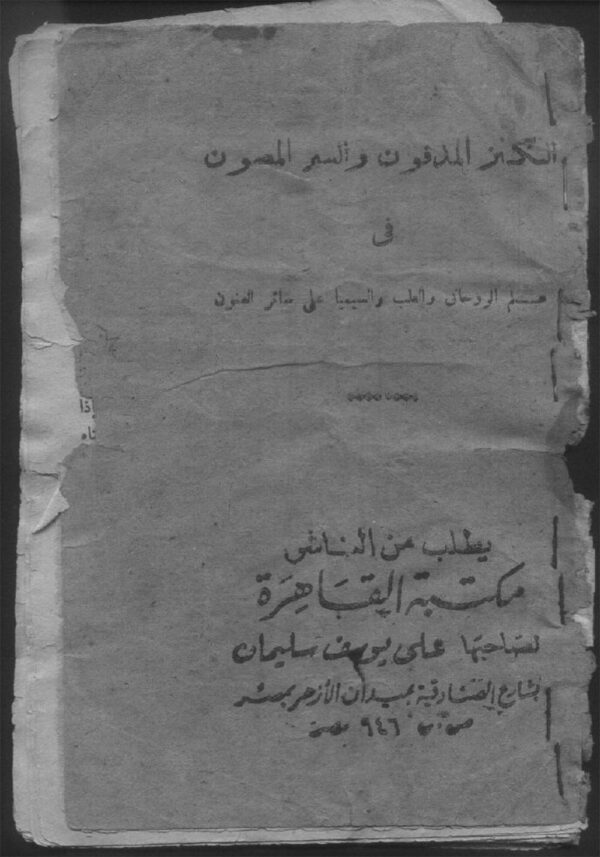 الكنز المدفون والسر المصون
فى
علم الروحانى والطب والسيميا على سائر الفنون
إذا
ناه
يطلب من الناشر
مكتبة القاهرة
لصاحبها على يوسف سليمان
بشارع الصنادقية بميدان الأزهر بمصر
ص.ب ٩٤٦ مصر